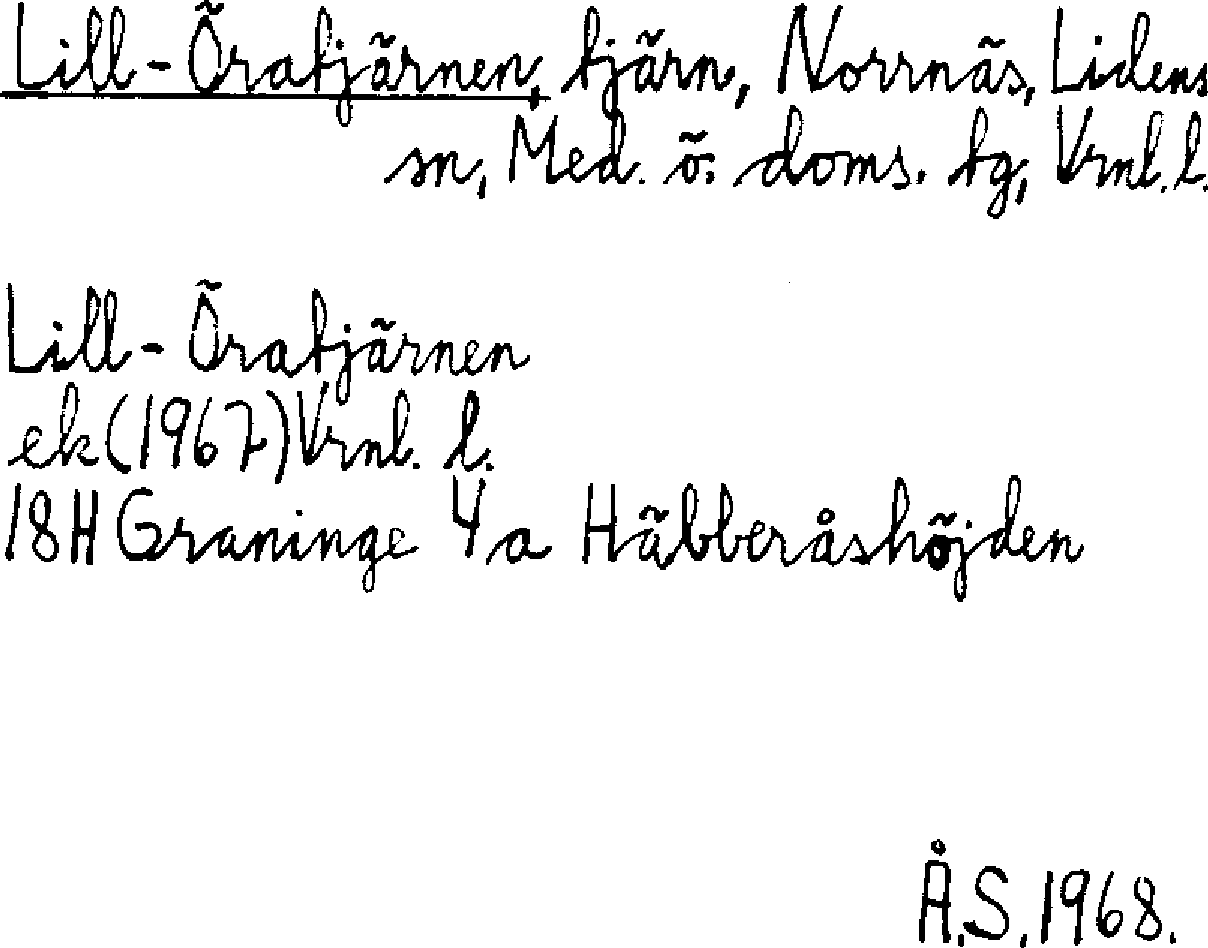 Lill-Öratjärnen, tjärn, Norrnäs, Lidens
sn, Med. ö. doms. tg, Vrnl. l.
Lill-Öratjärnen
ek (1967) Vrnl. l.
18H Graninge 4a Häbberåshöjden
Å.S. 1968.